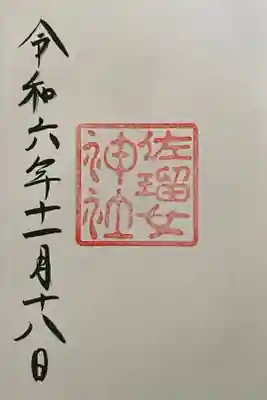 佐瑠女
神社
令和六年十一月十八日